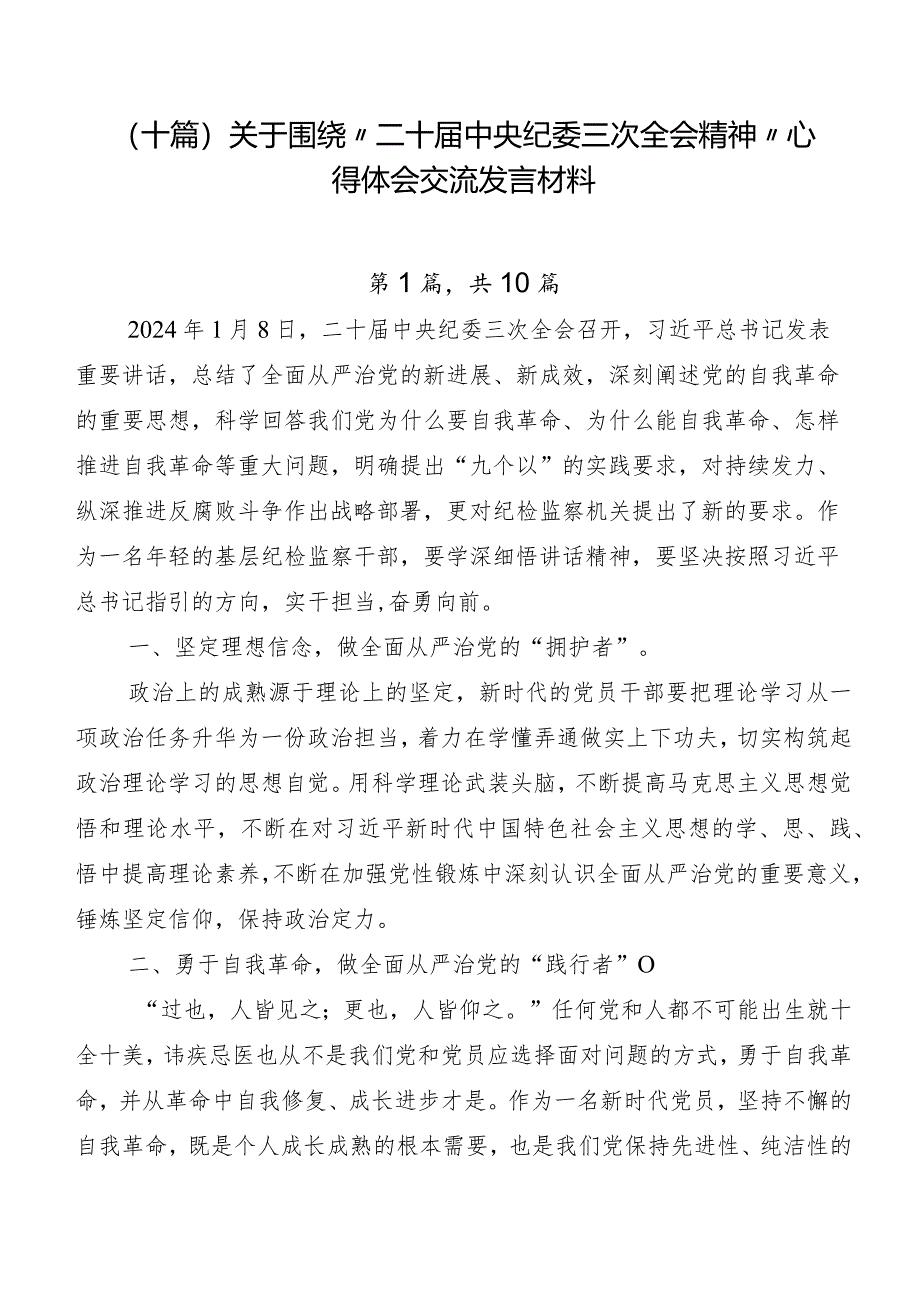 （十篇）关于围绕〃二十届中央纪委三次全会精神〃心
得体会交流发言材料
第1篇，共10篇
2024年1月8日，二十届中央纪委三次全会召开，习近平总书记发表
重要讲话，总结了全面从严治党的新进展、新成效，深刻阐述党的自我革命
的重要思想，科学回答我们党为什么要自我革命、为什么能自我革命、怎样
推进自我革命等重大问题，明确提出“九个以”的实践要求，对持续发力、
纵深推进反腐败斗争作出战略部署，更对纪检监察机关提出了新的要求。作
为一名年轻的基层纪检监察干部，要学深细悟讲话精神，要坚决按照习近平
总书记指引的方向，实干担当,奋勇向前。
一、坚定理想信念，做全面从严治党的“拥护者”。
政治上的成熟源于理论上的坚定，新时代的党员干部要把理论学习从一
项政治任务升华为一份政治担当，着力在学懂弄通做实上下功夫，切实构筑起
政治理论学习的思想自觉。用科学理论武装头脑，不断提高马克思主义思想觉
悟和理论水平，不断在对习近平新时代中国特色社会主义思想的学、思、践、
悟中提高理论素养，不断在加强党性锻炼中深刻认识全面从严治党的重要意义，
锤炼坚定信仰，保持政治定力。
二、勇于自我革命，做全面从严治党的“践行者”O
“过也，人皆见之；更也，人皆仰之。”任何党和人都不可能出生就十
全十美，讳疾忌医也从不是我们党和党员应选择面对问题的方式，勇于自我革
命，并从革命中自我修复、成长进步才是。作为一名新时代党员，坚持不懈的
自我革命，既是个人成长成熟的根本需要，也是我们党保持先进性、纯洁性的